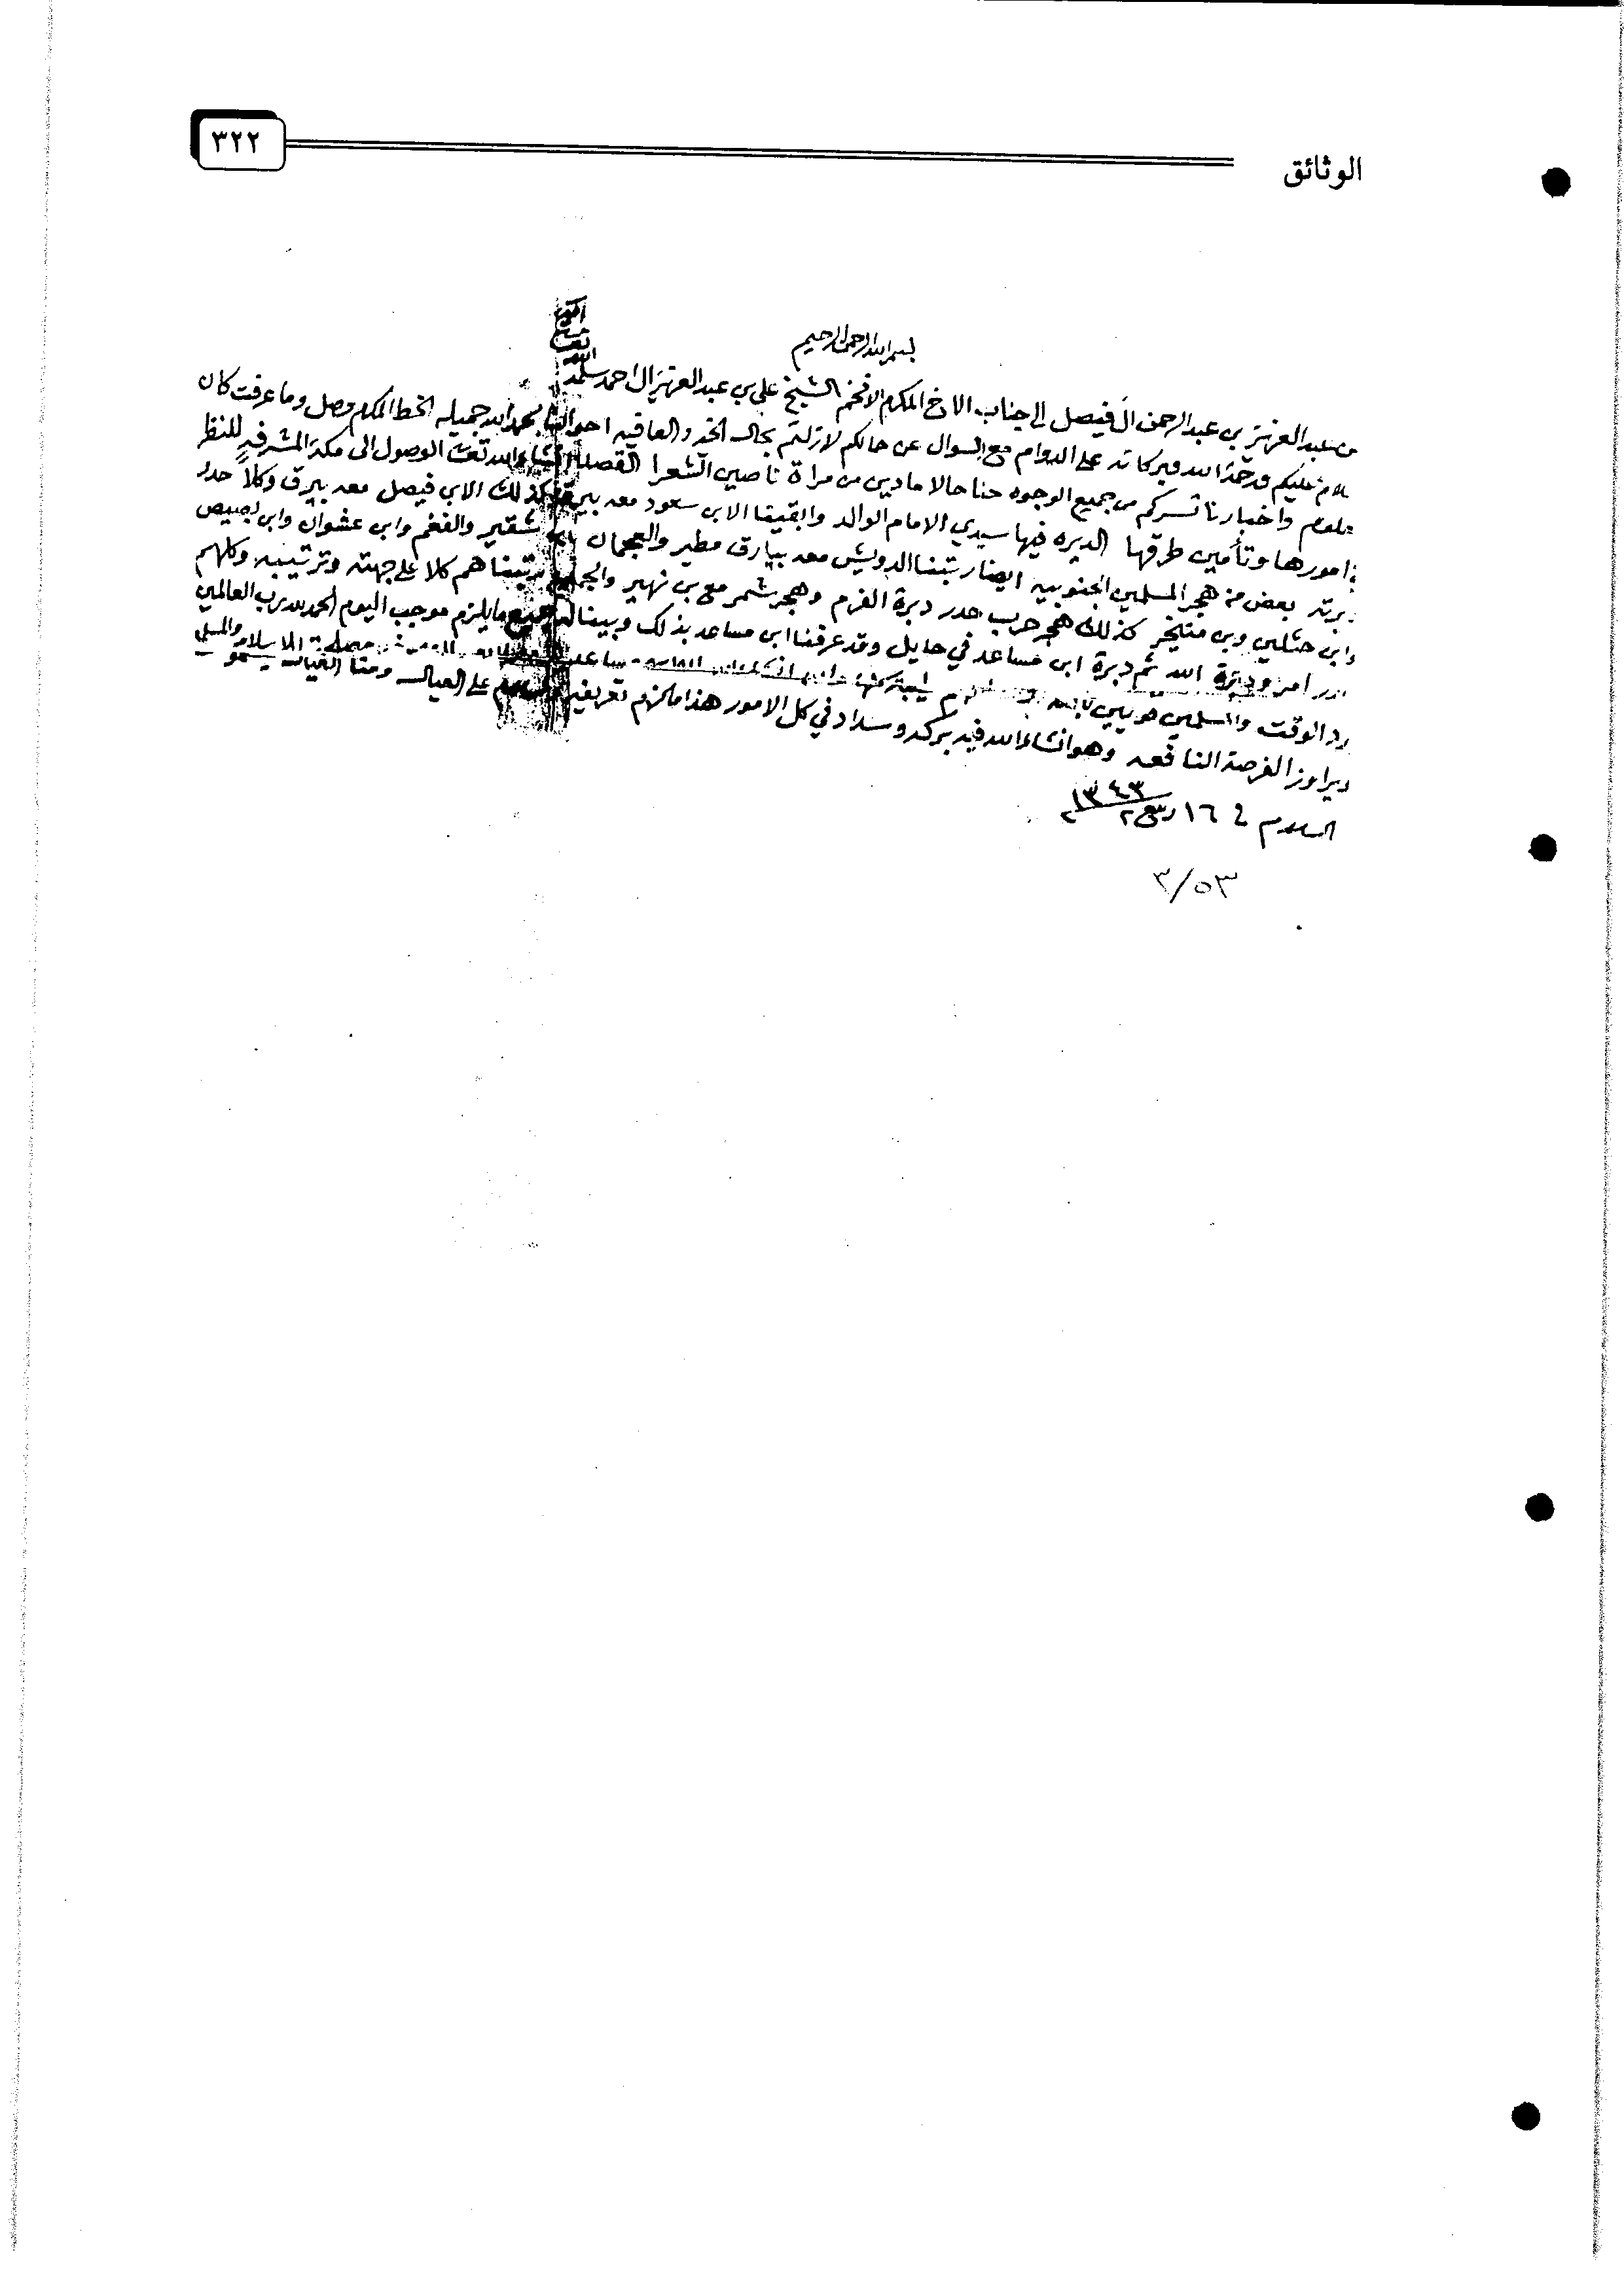 ٣٢٢
الوثائق
بسم الله الرحمن الرحيم
من عبد العزيز بن عبد الرحمن ال فيصل الى جناب الاخ المكرم الافخم الشيخ علي بن عبد العزيز ال احمد سلمه الله
عليكم ورحمة الله وبركاته على الدوام مع السوال عن حالكم لازلتم بحال الخير والعافيه احوالنا بحمد الله جميله الخط المكرم وصل وما عرفت كان
معلوم واخبارنا تسركم من جميع الوجوه حنا حالا مادين من مراة ناصين الشعرا القصد انشاء الله تعالى الوصول الى مكة المشرفه للنظر
امورها وتأمين طرقها الديره فيها سيدي الامام الوالد وابقينا الابن سعود معه بيرق كذلك الابن فيصل معه بيرق وكلاً حدر
بيرقه بعض من هجر المسلمين الجنوبيه ايضا رتبنا الدويش معه بيارق مطير والعجمان شقير والفغم وابن عشوان وابن بصيص
وابن حثلين وبن منيخر كذلك هجر حرب حدر دبرة الفرم وهجر شمر مع بن نهير رتبناهم كلا على جهته وترتيبه وكلهم
امر ودبرة الله ثم دبرة ابن مساعد في حايل وقد عرفنا ابن مساعد بذلك وبينا له جميع مايلزم موجب اليوم الحمد لله رب العالمين
الوقت والمسلمين الاسلام والمسلمين
الفرصة النافعه وهو انشاء الله فيه بركه وسداد في كل الامور هذا مالزم تعريفه على العيال ومنا العيال يسلمو
السلام في ١٦ ربيع ٢ ١٣٤٣
٣/٥٣